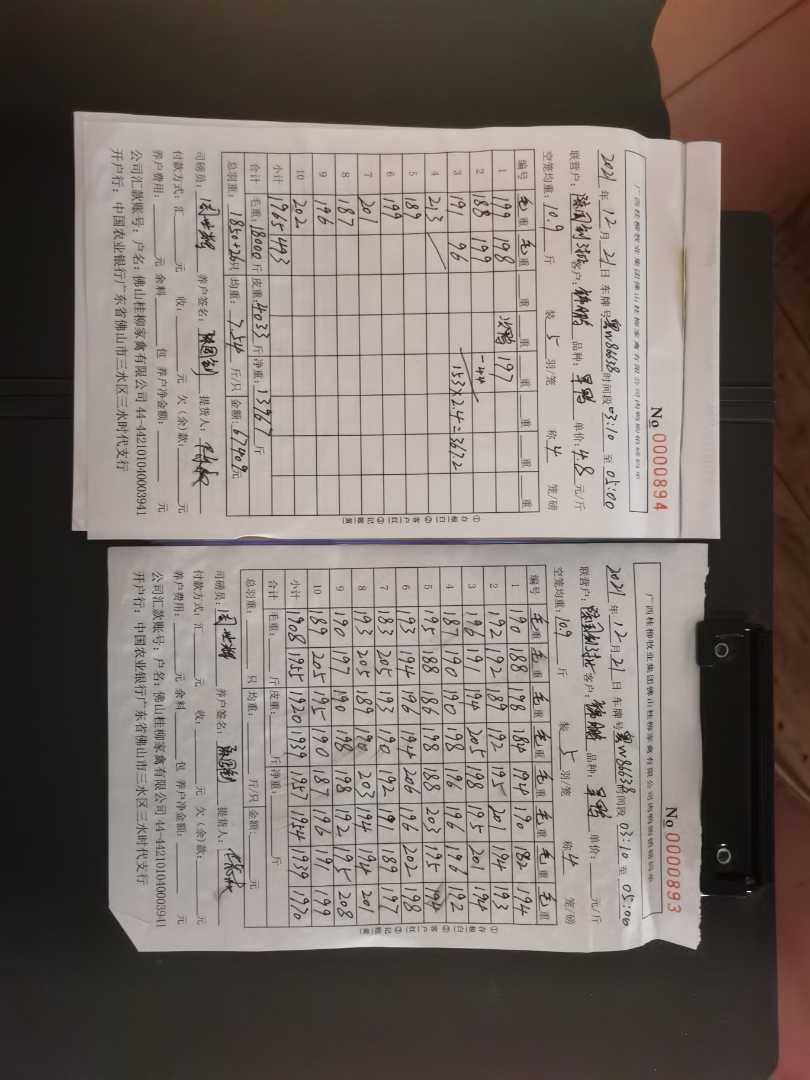 广西桂柳牧业集团佛山桂柳家禽有限公司
No 0000894
2021年12月21日 车牌号 W86638 时间段 03:10 至 05:00
联营户: 客户: 品种: 单价: 4.8 元/斤
空笼均重: 10.9 斤 装 5 羽/笼 称 4 笼/磅
编号 毛重 毛重 重 重 重 重 重 重
1 199 198 197
2 188 199 -44
3 191 96 153×2.4=367.2
4 213
5 189
6 199
7 201
8 187
9 196
10 202
小计 1965 493
合计 毛重: 18000 斤 皮重: 4033 斤 净重: 13967 斤
总羽重: 1850+2 只 均重: 7.54 斤/只 金额: 67409 元
司磅员: 养户签名: 提货人:
付款方式: 汇 元 收: 元 欠(余)款: 元
养户费用: 元 余料 包 养户净金额: 元
公司汇款账号: 户名: 佛山桂柳家禽有限公司 44-442101040003941
开户行: 中国农业银行广东省佛山市三水区三水时代支行
①存根白 ②客户红 ③记账黄
广西桂柳牧业集团佛山桂柳家禽有限公司
No 0000893
2021年12月21日 车牌号 W86638 时间段 03:10 至 05:00
联营户: 客户: 品种: 单价: 元/斤
空笼均重: 10.9 斤 装 5 羽/笼 称 4 笼/磅
编号 毛重 毛重 毛重 毛重 毛重 毛重 毛重 毛重
1 190 188 198 184 194 190 182 194
2 192 192 189 192 195 201 194 193
3 196 191 194 205 198 195 201 194
4 187 190 190 198 196 196 196 192
5 195 188 186 198 188 203 195 194
6 193 194 196 194 206 196 202 198
7 183 205 193 190 192 191 189 197
8 193 205 189 190 203 194 194 201
9 190 197 190 198 198 192 195 208
10 189 205 195 190 187 196 191 199
小计 1908 1955 1920 1939 1957 1954 1939 1970
合计 毛重: 斤 皮重: 斤 净重: 斤
总羽重: 只 均重: 斤/只 金额: 元
司磅员: 养户签名: 提货人:
付款方式: 汇 元 收: 元 欠(余)款: 元
养户费用: 元 余料 包 养户净金额: 元
公司汇款账号: 户名: 佛山桂柳家禽有限公司 44-442101040003941
开户行: 中国农业银行广东省佛山市三水区三水时代支行
①存根白 ②客户红 ③记账黄